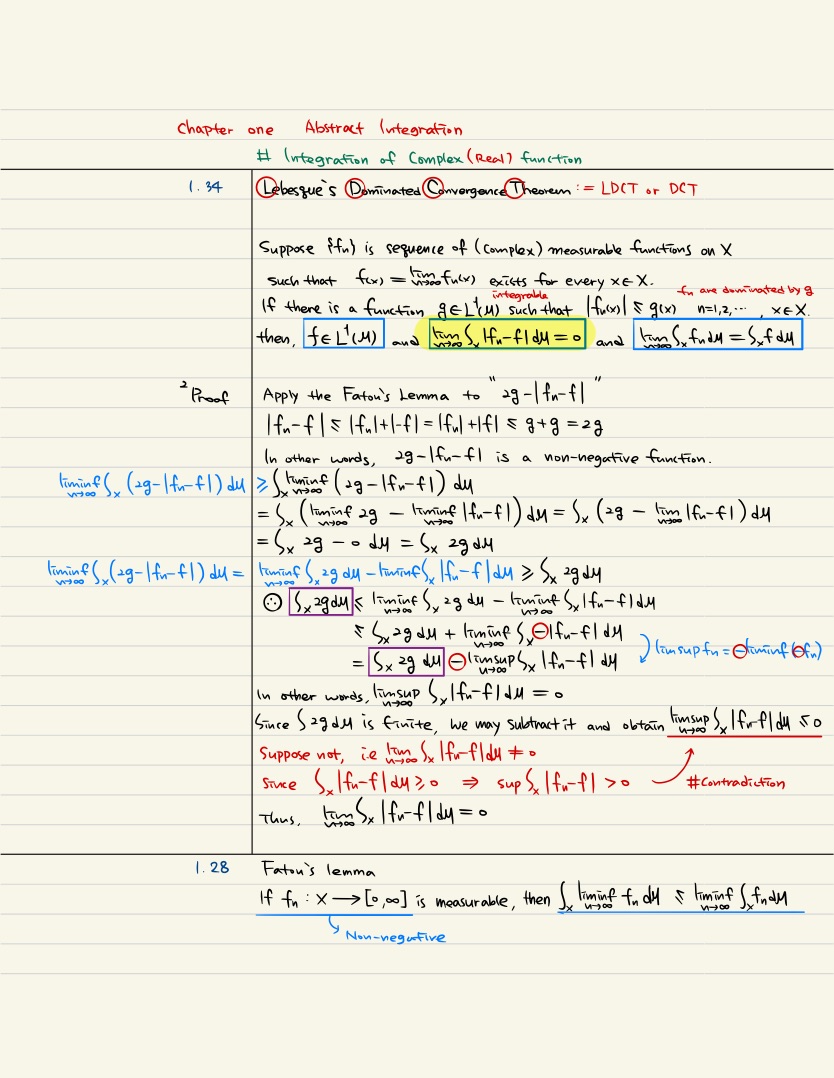 Chapter one Abstract Integration
# Integration of Complex (Real) function
1.34 Lebesgue's Dominated Convergence Theorem := LDCT or DCT
Suppose {fn} is sequence of (complex) measurable functions on X
such that f(x) = lim n→∞ fn(x) exists for every x∈X.
integrable fn are dominated by g
If there is a function g∈L¹(μ) such that |fn(x)| ≤ g(x) n=1,2,⋯, x∈X.
then, f∈L¹(μ) and lim n→∞ ∫x |fn-f| dμ = 0 and lim n→∞ ∫x fn dμ = ∫x f dμ
2 Proof Apply the Fatou's Lemma to "2g-|fn-f|"
|fn-f| ≤ |fn|+|-f| = |fn|+|f| ≤ g+g = 2g
In other words, 2g-|fn-f| is a non-negative function.
liminf n→∞ ∫x (2g-|fn-f|) dμ ≥ ∫x liminf n→∞ (2g-|fn-f|) dμ
= ∫x (liminf n→∞ 2g - liminf n→∞ |fn-f|) dμ = ∫x (2g - lim n→∞ |fn-f|) dμ
= ∫x 2g - 0 dμ = ∫x 2g dμ
liminf n→∞ ∫x (2g-|fn-f|) dμ = liminf n→∞ ∫x 2g dμ - liminf n→∞ ∫x |fn-f| dμ ≥ ∫x 2g dμ
∴ ∫x 2g dμ ≤ liminf n→∞ ∫x 2g dμ - liminf n→∞ ∫x |fn-f| dμ
≤ ∫x 2g dμ + liminf n→∞ ∫x -|fn-f| dμ
= ∫x 2g dμ - limsup n→∞ ∫x |fn-f| dμ limsup fn = -liminf(-fn)
In other words, limsup n→∞ ∫x |fn-f| dμ = 0
Since ∫ 2g dμ is finite, we may subtract it and obtain limsup n→∞ ∫x |fn-f| dμ ≤ 0
Suppose not, i.e lim n→∞ ∫x |fn-f| dμ ≠ 0
Since ∫x |fn-f| dμ ≥ 0 ⇒ sup ∫x |fn-f| > 0 #Contradiction
Thus, lim n→∞ ∫x |fn-f| dμ = 0
1.28 Fatou's lemma
If fn : X → [0,∞] is measurable, then ∫x liminf n→∞ fn dμ ≤ liminf n→∞ ∫x fn dμ
Non-negative